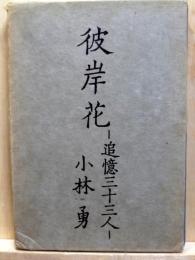 彼岸花
－追憶三十三人－
小林 勇